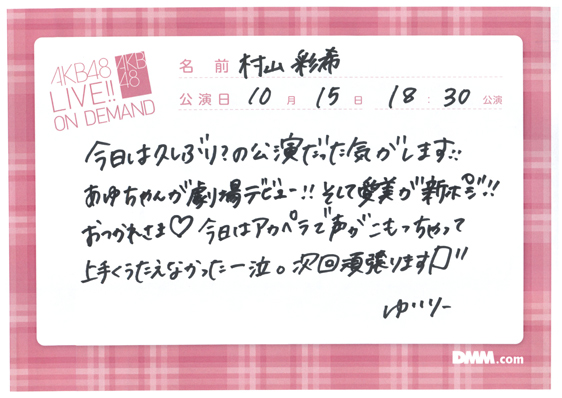 AKB48
LIVE!!
ON DEMAND
AKB
48
名前 村山 彩希
公演日 10月 15日 18:30公演
今日は久しぶり?の公演だった気がします!!
あゆちゃんが劇場デビュー!! そして愛美が新ポジ!!
おつかれさま♡ 今日はアカペラで声がこもっちゃって
上手くうたえなかった一泣。次回頑張ります
ゆいりー
DMM.com